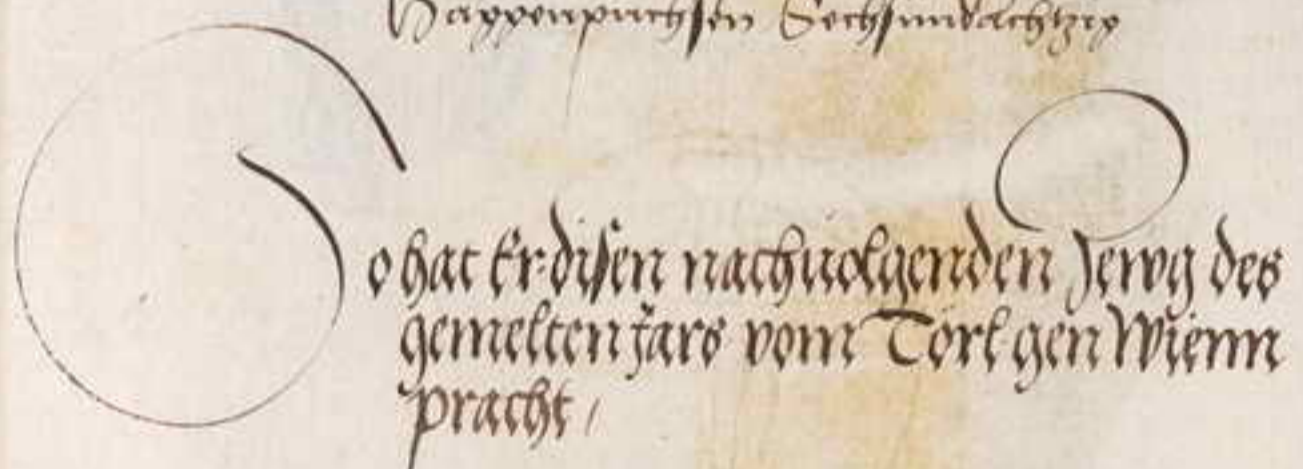 Happenpuchsen Sechsundachtzig
So hat Er disen nachuolgenden Zewg des
gemelten jars vom Törl gen Wienn
pracht /